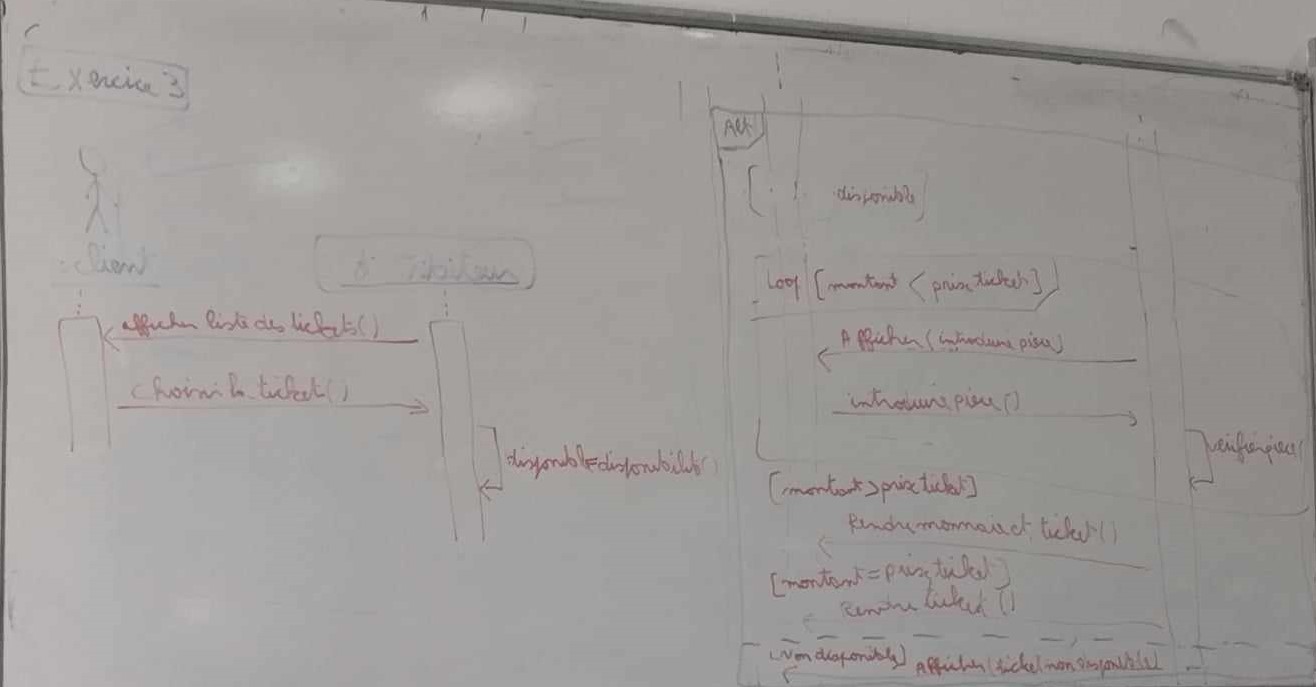 Exercice 3
:client
afficher liste des tickets()
choisir le ticket()
disponible=disponibilité()
Alt
[ disponible]
Loop [montant < prix ticket]
Afficher(introduire pièce)
introduire pièce()
vérifier pièce(
[montant > prix ticket]
Rendre monnaie et ticket()
[montant = prix ticket]
Rendre ticket()
[Non disponible] Afficher(ticket non disponible)